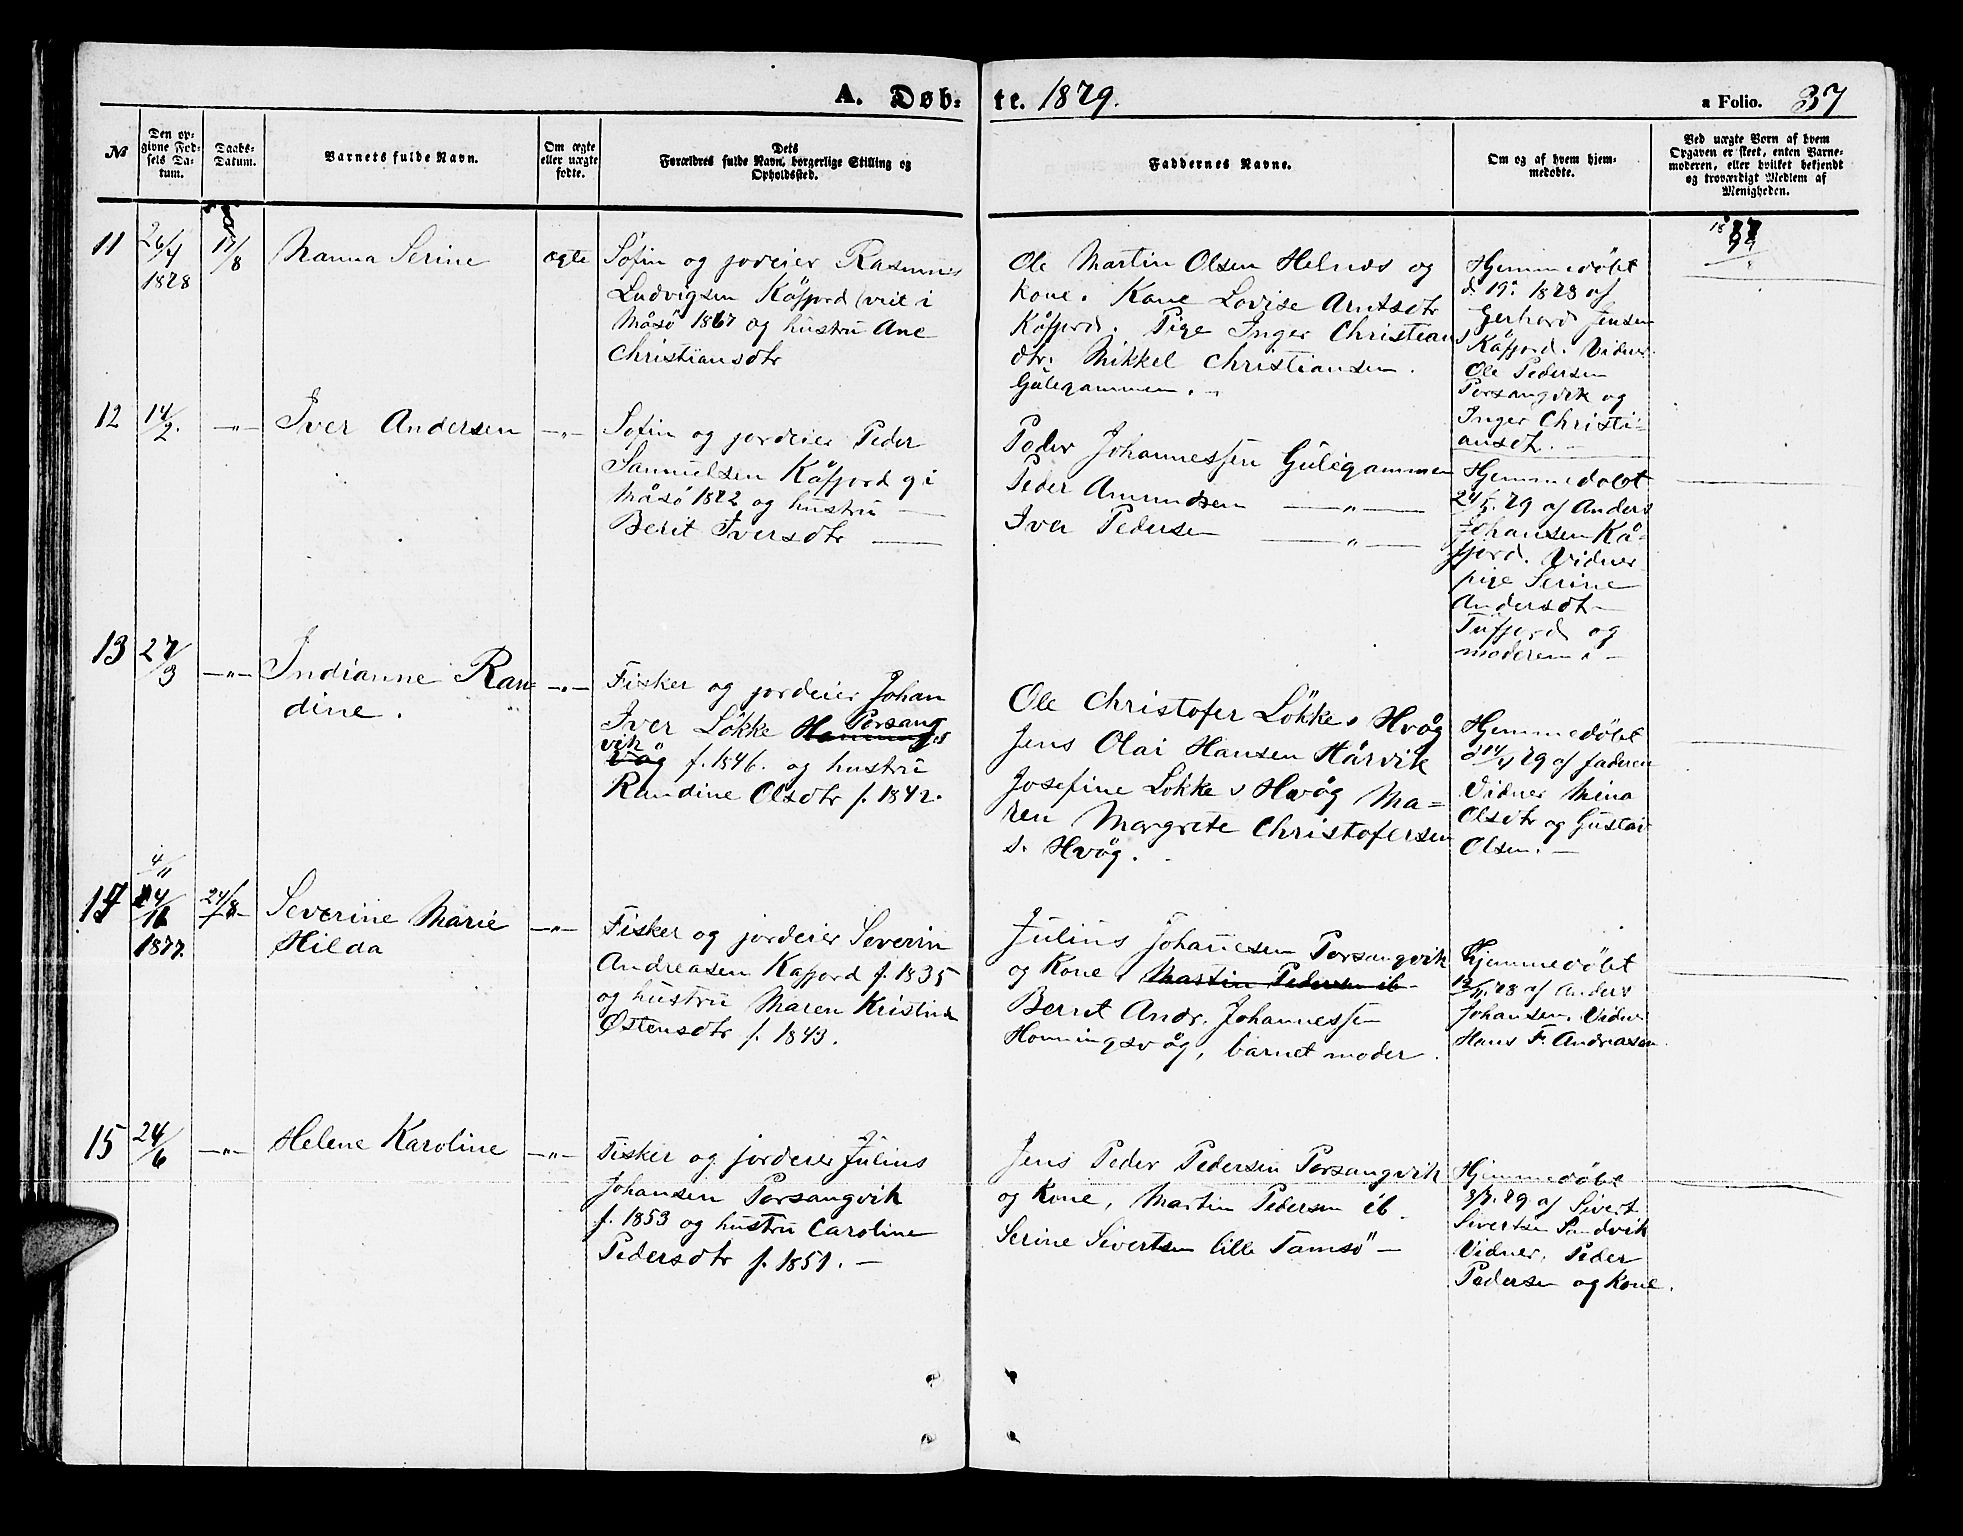 A. Døb-
te. 1879.
a Folio. 37
№
Den op-
givne Fød-
sels Da-
tum.
Daabs-
Datum.
Barnets fulde Navn.
Om ægte
eller uægte
fødte.
Dets
Forældres fulde Navn, borgerlige Stilling og
Opholdssted.
Faddernes Navne.
Om og af hvem hjem-
medøbte.
Ved uægte Børn af hvem
Opgaven er skeet, enten Barne-
moderen, eller hvilket bekjendt
og troværdigt Medlem af
Menigheden.
11
26/4
1878
17/8
Nanna Serine
ægte
Søfin og jordeier Rasmus
Ludvigsen Kåfjord (viet i
Måsö 1867 og hustru Ane
Christiansdtr
Ole Martin Olsen Helnes og
kone. Kone Lovise Arntsdtr
Kåfjord. Pige Inger Christians
dtr. Mikkel Christiansen.
Gulegammen.
Hjemmedöbt
d. 19. 1878 af
Gerhard Jensen
Kåfjord. Vidner
Ole Pedersen
Porsangvik og
Inger Christi-
ansdt. –
12
14/2.
–„–
Iver Andersen
–„–
Søfin og jordeier Peder
Samuelsen Kåfjord g i
Måsö 1872 og hustru –
Berit Iversdtr –
Peder Johannessen Gulegammen
Peder Amundsen –„–
Iver Pedersen –„–
Hjemmedöbt
24/5. 79 af Anders
Johansen Kå-
fjord. Vidner
pige Serine
Andersdt–
Tufjord og
moderen. –
13
27/3
–„–
Indianne Ran-
dine.
–„–
Fisker og jordeier Johan
Iver Lökke Porsang
vik f. 1846. og hustru
Randine Olsdtr f. 1842.
Ole Christofer Lökke s Hvåg
Jens Olai Hansen Hårvik
Josefine Lökke s Hvåg Ma-
ren Margrete Christofersen
s. Hvåg.
Hjemmedöbt
14/4 79 af faderen
Vidner Mina
Olsdtr og Gustav
Olsen. –
14
4/11
1877.
24/8
Severine Marie
Hilda
–„–
Fisker og jordeier Severin
Andreasen Kafjord f. 1835
og hustru Maren Kristine
Östensdtr f. 1843.
Julius Johanesen Porsangvik
og Kone, Martin Pedersen ib
Bernt Andr. Johannessen
Honningsvåg, barnet moder.
Hjemmedöbt
78 af Anders
Johansen. Vidner
Hans F. Andreasen
15
24/6
–„–
Helene Karoline
–„–
Fisker og jordeier Julius
Johansen Porsangvik
f. 1853 og hustru Caroline
Pedersdtr f. 1851. –
Jens Peder Pedersen Porsangvik
og Kone, Martin Pedersen ib.
Serine Sivertsen lille Tamsö –
Hjemmedöbt
8/7. 79 af Sivert
Sivertsen Sandvik
Vidner, Peder
Pedersen og Kone.